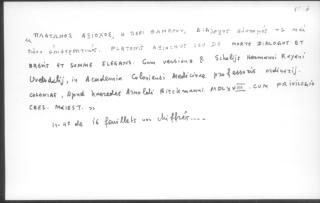 « ΠΛΑΤΩΝΟΣ ΑΞΙΟΧΟΣ, Η ΠΕΡΙ ΘΑΝΑΤΟΥ, ΔΙΑλογος
PLATONIS AXIOCHUS SEU DE MORTE DIALOGUS ET
BREVIS ET SUMME ELEGANS. Cum versione & Scholijs Hermanni Rayani
in Academia Coloniensi Medicinae professoris ordinarij.
COLONIAE, Apud haeredes Arnoldi Birckmanni. MDLXVIII. CUM PRIVILEGIO
CAES. MAIEST. »
in-4° de 16 feuillets non chiffrés....